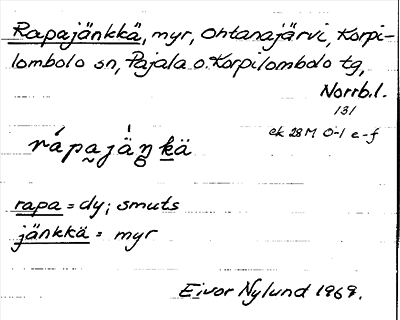 Rapajänkkä, myr, Ohtanajärvi, Korpi-
lombolo sn, Pajala o. Korpilombolo tg,
Norrb.l.
131
ek 28 M 0-1 e-f
rápa̰jä̀ŋ̥kä
rapa = dy; smuts
jänkkä = myr
Eivor Nylund 1969.